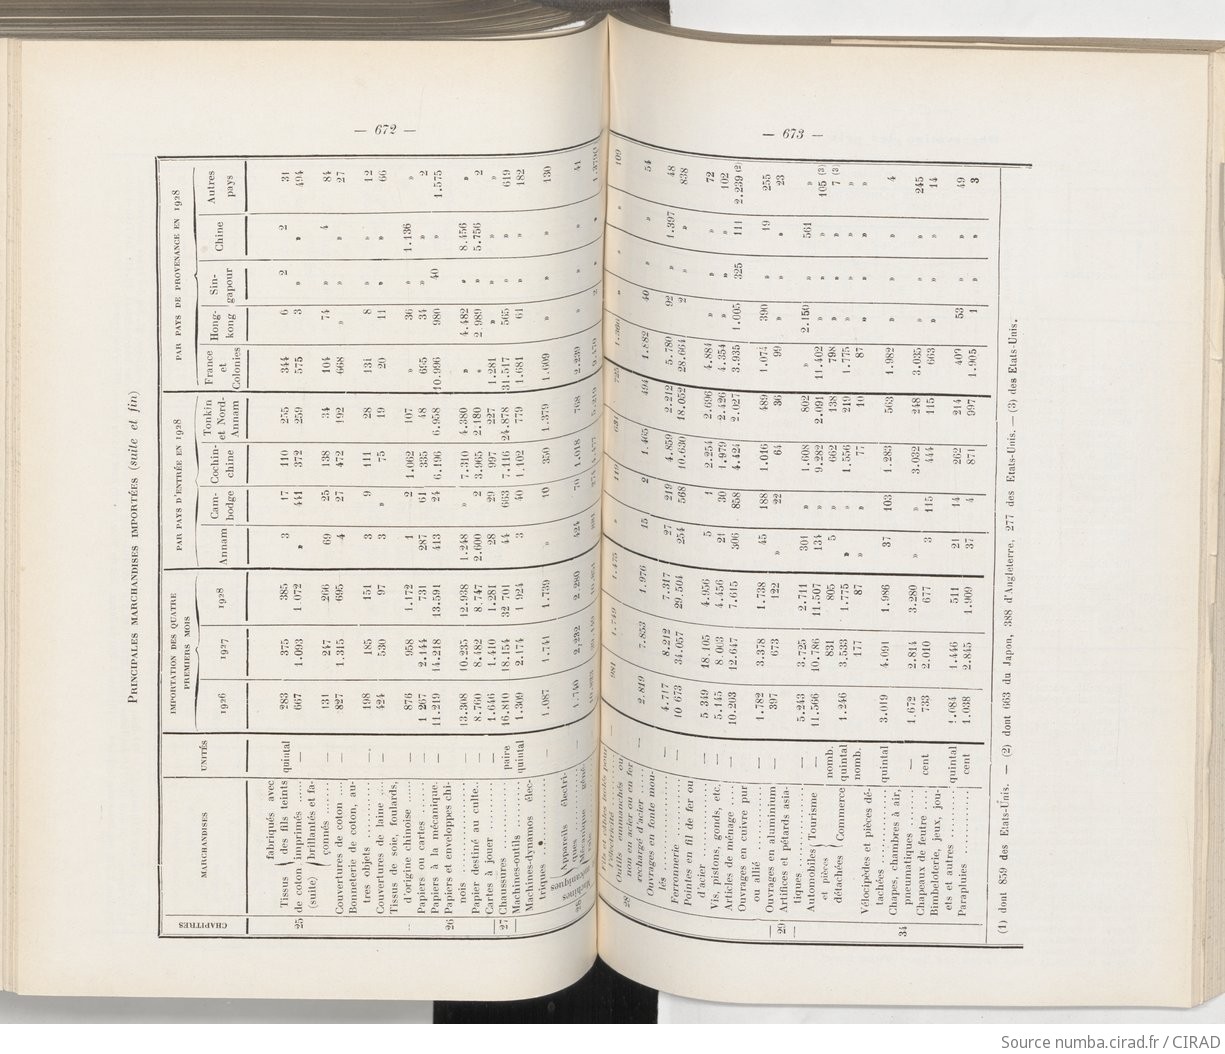 — 672 —
— 673 —
PRINCIPALES MARCHANDISES IMPORTÉES (suite et fin)
CHAPITRES
MARCHANDISES
UNITÉS
IMPORTATION DES QUATRE
PREMIERS MOIS
1926 1927 1928
PAR PAYS D'ENTRÉE EN 1928
Annam
Cam-
bodge
Cochin-
chine
Tonkin
et Nord-
Annam
PAR PAYS DE PROVENANCE EN 1928
France
et
Colonies
Hong-
kong
Sin-
gapour
Chine
Autres
pays
25
Tissus de coton (suite)
fabriqués avec
des fils teints quintal 283 375 385 3 17 110 255 344 6 2 2 31
imprimés — 667 1.093 1 072 » 441 372 259 575 3 » » 494
brillantés et fa-
çonnés — 131 247 266 69 25 138 34 104 74 » 4 84
Couvertures de coton — 827 1.315 695 4 27 472 192 668 » » » 27
Bonneterie de coton, au-
tres objets — 198 185 151 3 9 111 28 131 8 » » 12
Couvertures de laine — 424 530 97 3 » 75 19 20 11 » » 66
Tissus de soie, foulards,
d'origine chinoise — 876 958 1.172 1 2 1.062 107 » 36 » 1.136 »
26
Papiers ou cartes — 1 267 2.144 731 287 61 335 48 695 34 » » 2
Papiers à la mécanique — 11.219 14.218 13.591 413 24 6.196 6.958 10.996 980 40 » 1.575
Papiers et enveloppes chi-
nois — 13.308 10.235 12.938 1.248 » 7.310 4.380 » 4.482 » 8.456 »
Papier destiné au culte — 8.760 8.482 8.747 2.600 2 3.965 2.180 » 2.989 » 5.756 2
Cartes à jouer — 1.646 1.410 1.281 28 29 997 227 1.281 » » » »
27
Chaussures paire 16.810 18.154 32 701 44 663 7.116 24.878 31.517 565 » » 619
Machines-outils quintal 1.309 2.174 1 924 3 40 1.102 779 1.681 61 » » 182
Machines-dynamos élec-
triques — 1.087 1.741 1.739 » 10 350 1.379 1.609 » » » 130
28
Machines mécaniques
Appareils électri-
ques — 1.740 2.232 2 280 424 70 1.018 768 2.239 » » » 41
Mécanique géné-
rale
Fils et câbles isolés pour
l'électricité — 981 1.749 1.475 » 119 631 725 1.366 » » » 109
Outils emmanchés ou
non en acier ou en fer
rechargé d'acier — 2.819 7.853 1.976 15 2 1.465 494 1.882 40 » » 54
Ouvrages en fonte mou-
lés — 4.717 8.212 7.317 27 219 4.859 2.212 5.780 92 » 1.397 48
Ferronnerie — 10 673 34.057 29.504 254 568 10.630 18.052 28.664 2 » » 838
Pointes en fil de fer ou
d'acier — 5 349 18.105 4.956 5 1 2.254 2.696 4.884 » » » 72
Vis, pistons, gonds, etc. — 5.145 8.063 4.456 21 30 1.979 2.426 4.354 » » » 102
Articles de ménage — 10.203 12.647 7.615 306 858 4.424 2.027 3.935 1.005 325 111 2.239 (2)
Ouvrages en cuivre pur
ou allié — 1.782 3.378 1.738 45 188 1.016 489 1.074 390 » 19 255
Ouvrages en aluminium — 397 673 122 » 22 64 36 99 » » » 23
29
Artifices et pétards asia-
tiques — 5.243 3.725 2.711 301 » 1.608 802 » 2.150 » 561 »
Automobiles et pièces détachées
Tourisme — 11.566 10.786 11.507 134 » 9.282 2.091 11.402 » » » 105 (3)
nomb. 831 805 5 » 662 138 798 » » » 7 (3)
Commerce quintal 1.246 3,533 1.775 » » 1.556 219 1.775 » » » »
nomb. 177 87 » » 77 10 87 » » » »
34
Vélocipèdes et pièces dé-
tachées quintal 3.019 4.091 1.986 37 103 1.283 563 1.982 » » » 4
Chapes, chambres à air,
pneumatiques — 1.672 2.814 3.280 » » 3.032 248 3.035 » » » 245
Chapeaux de feutre cent 733 2.010 677 3 115 444 115 663 » » » 14
Bimbeloterie, jeux, jou-
ets et autres quintal 1.084 1.446 511 21 14 262 214 409 53 » » 49
Parapluies cent 1.038 2.845 1.909 37 4 871 997 1.905 1 » » 3
(1) dont 859 des Etats-Unis. — (2) dont 663 du Japon, 388 d'Angleterre, 277 des Etats-Unis. — (3) des Etats-Unis.
Source numba.cirad.fr / CIRAD